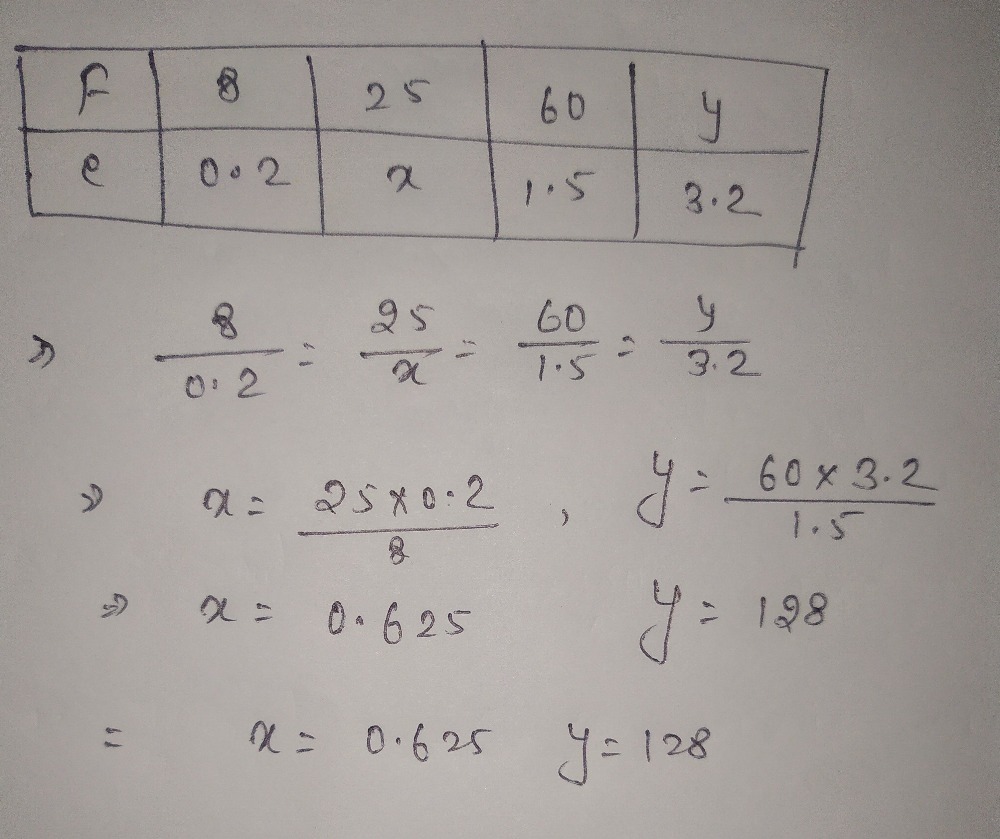 F 8 25 60 y
e 0.2 x 1.5 3.2
⇒ 8/0.2 = 25/x = 60/1.5 = y/3.2
⇒ x = 25×0.2/8 , y = 60×3.2/1.5
⇒ x = 0.625 y = 128
= x = 0.625 y = 128